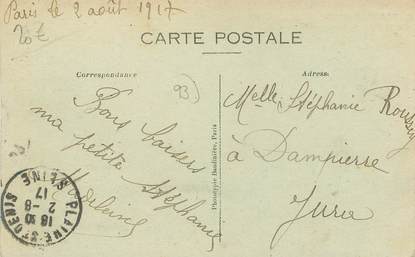 Paris le 2 août 1917
20 €
CARTE POSTALE
Correspondance
Adresse
93
Bons baisers
ma petite Stéphanie
Madeleine
Melle Stéphanie
à Dampierre
Jura
Phototypie Baudinière, Paris
LA PLAINE-ST-DENIS
SEINE
18 10
2 - 8
17